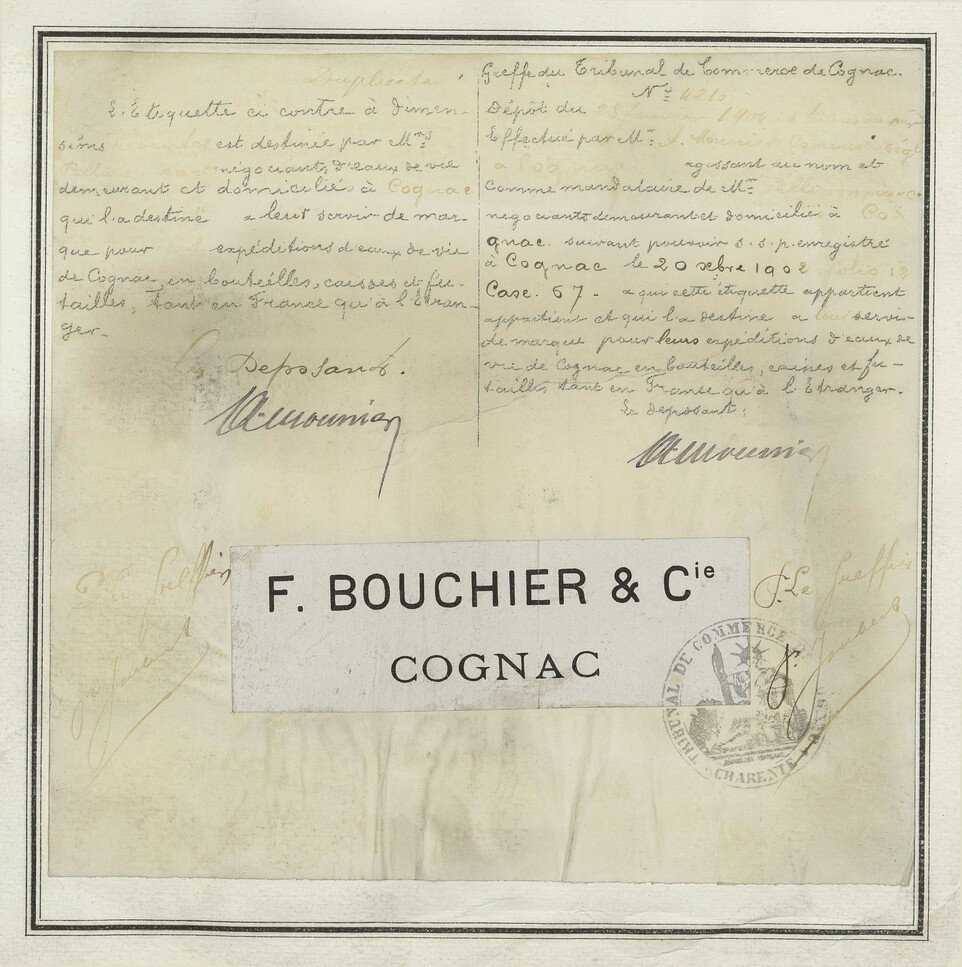 Duplicata
L'Etiquette ci contre à dimen-
sions est destinée par Mrs
négociants d'eaux de vie
demeurant et domiciliés à Cognac
qui l'a destiné a leur servir de mar-
que pour expéditions d'eaux de vie
de Cognac, en bouteilles, caisses et fu-
tailles, tant en France qu'à l'Etran-
ger.
Deposant.
Greffe du Tribunal de Commerce de Cognac.
No 4216
Dépôt du
Effectué par Mr
agissant au nom et
comme mandataire de Mr
negociants demeurant et domicilié à Co
gnac. suivant pouvoir s.s.p. enregistré
à Cognac le 20 xbre 1902 folio 12
Case. 67 - a qui cette étiquette appartient
et qui l'a destine a leur servir
de marque pour leurs expéditions d'eaux de
vie de Cognac en bouteilles, caisses et fu-
tailles tant en France qu'à l'Etranger.
Le deposant;
Le Greffier
P. Le Greffier
F. BOUCHIER & Cie
COGNAC
TRIBUNAL DE COMMERCE
CHARENTE